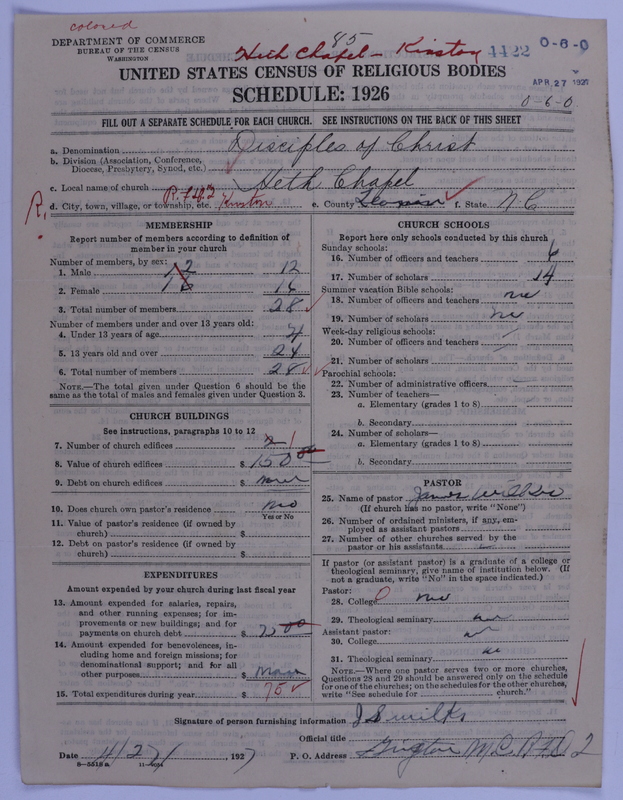 colored
DEPARTMENT OF COMMERCE
BUREAU OF THE CENSUS
WASHINGTON
85
Heth Chapel - Kinston
4422
0-6-0
UNITED STATES CENSUS OF RELIGIOUS BODIES
APR 27 192
SCHEDULE: 1926
0-6-0
FILL OUT A SEPARATE SCHEDULE FOR EACH CHURCH. SEE INSTRUCTIONS ON THE BACK OF THIS SHEET
a. Denomination Disciples of Christ
b. Division (Association, Conference,
Diocese, Presbytery, Synod, etc.)
c. Local name of church Heth Chapel
R.
d. City, town, village, or township, etc. Kinston e. County f. State N C
MEMBERSHIP
Report number of members according to definition of
member in your church
Number of members, by sex:
1. Male 12 12
2. Female 16 16
3. Total number of members 28
Number of members under and over 13 years old:
4. Under 13 years of age 4
5. 13 years old and over 24
6. Total number of members 28
NOTE.—The total given under Question 6 should be the
same as the total of males and females given under Question 3.
CHURCH BUILDINGS
See instructions, paragraphs 10 to 12
7. Number of church edifices 1
8. Value of church edifices $ 150 00
9. Debt on church edifices $
10. Does church own pastor's residence no
Yes or No
11. Value of pastor's residence (if owned by
church) $
12. Debt on pastor's residence (if owned by
church) $
EXPENDITURES
Amount expended by your church during last fiscal year
13. Amount expended for salaries, repairs,
and other running expenses; for im-
provements or new buildings; and for
payments on church debt $ 75 00
14. Amount expended for benevolences, in-
cluding home and foreign missions; for
denominational support; and for all
other purposes $
15. Total expenditures during year $ 75
CHURCH SCHOOLS
Report here only schools conducted by this church
Sunday schools:
16. Number of officers and teachers 6
17. Number of scholars 14
Summer vacation Bible schools:
18. Number of officers and teachers no
19. Number of scholars no
Week-day religious schools:
20. Number of officers and teachers
21. Number of scholars
Parochial schools:
22. Number of administrative officers
23. Number of teachers—
a. Elementary (grades 1 to 8)
b. Secondary
24. Number of scholars—
a. Elementary (grades 1 to 8)
b. Secondary
PASTOR
25. Name of pastor James
(If church has no pastor, write "None")
26. Number of ordained ministers, if any, em-
ployed as assistant pastors
27. Number of other churches served by the
pastor or his assistants
If pastor (or assistant pastor) is a graduate of a college or
theological seminary, give name of institution below. (If
not a graduate, write "No" in the space indicated.)
Pastor:
28. College no
29. Theological seminary no
Assistant pastor:
30. College no
31. Theological seminary no
NOTE.—Where one pastor serves two or more churches,
Questions 28 and 29 should be answered only on the schedule
for one of the churches; on the schedules for the other churches,
write "See schedule for church."
Signature of person furnishing information J S Wilks
Official title
Date 4/27/ 1927 P. O. Address N.C. R.F.D. 2
8—5518 a